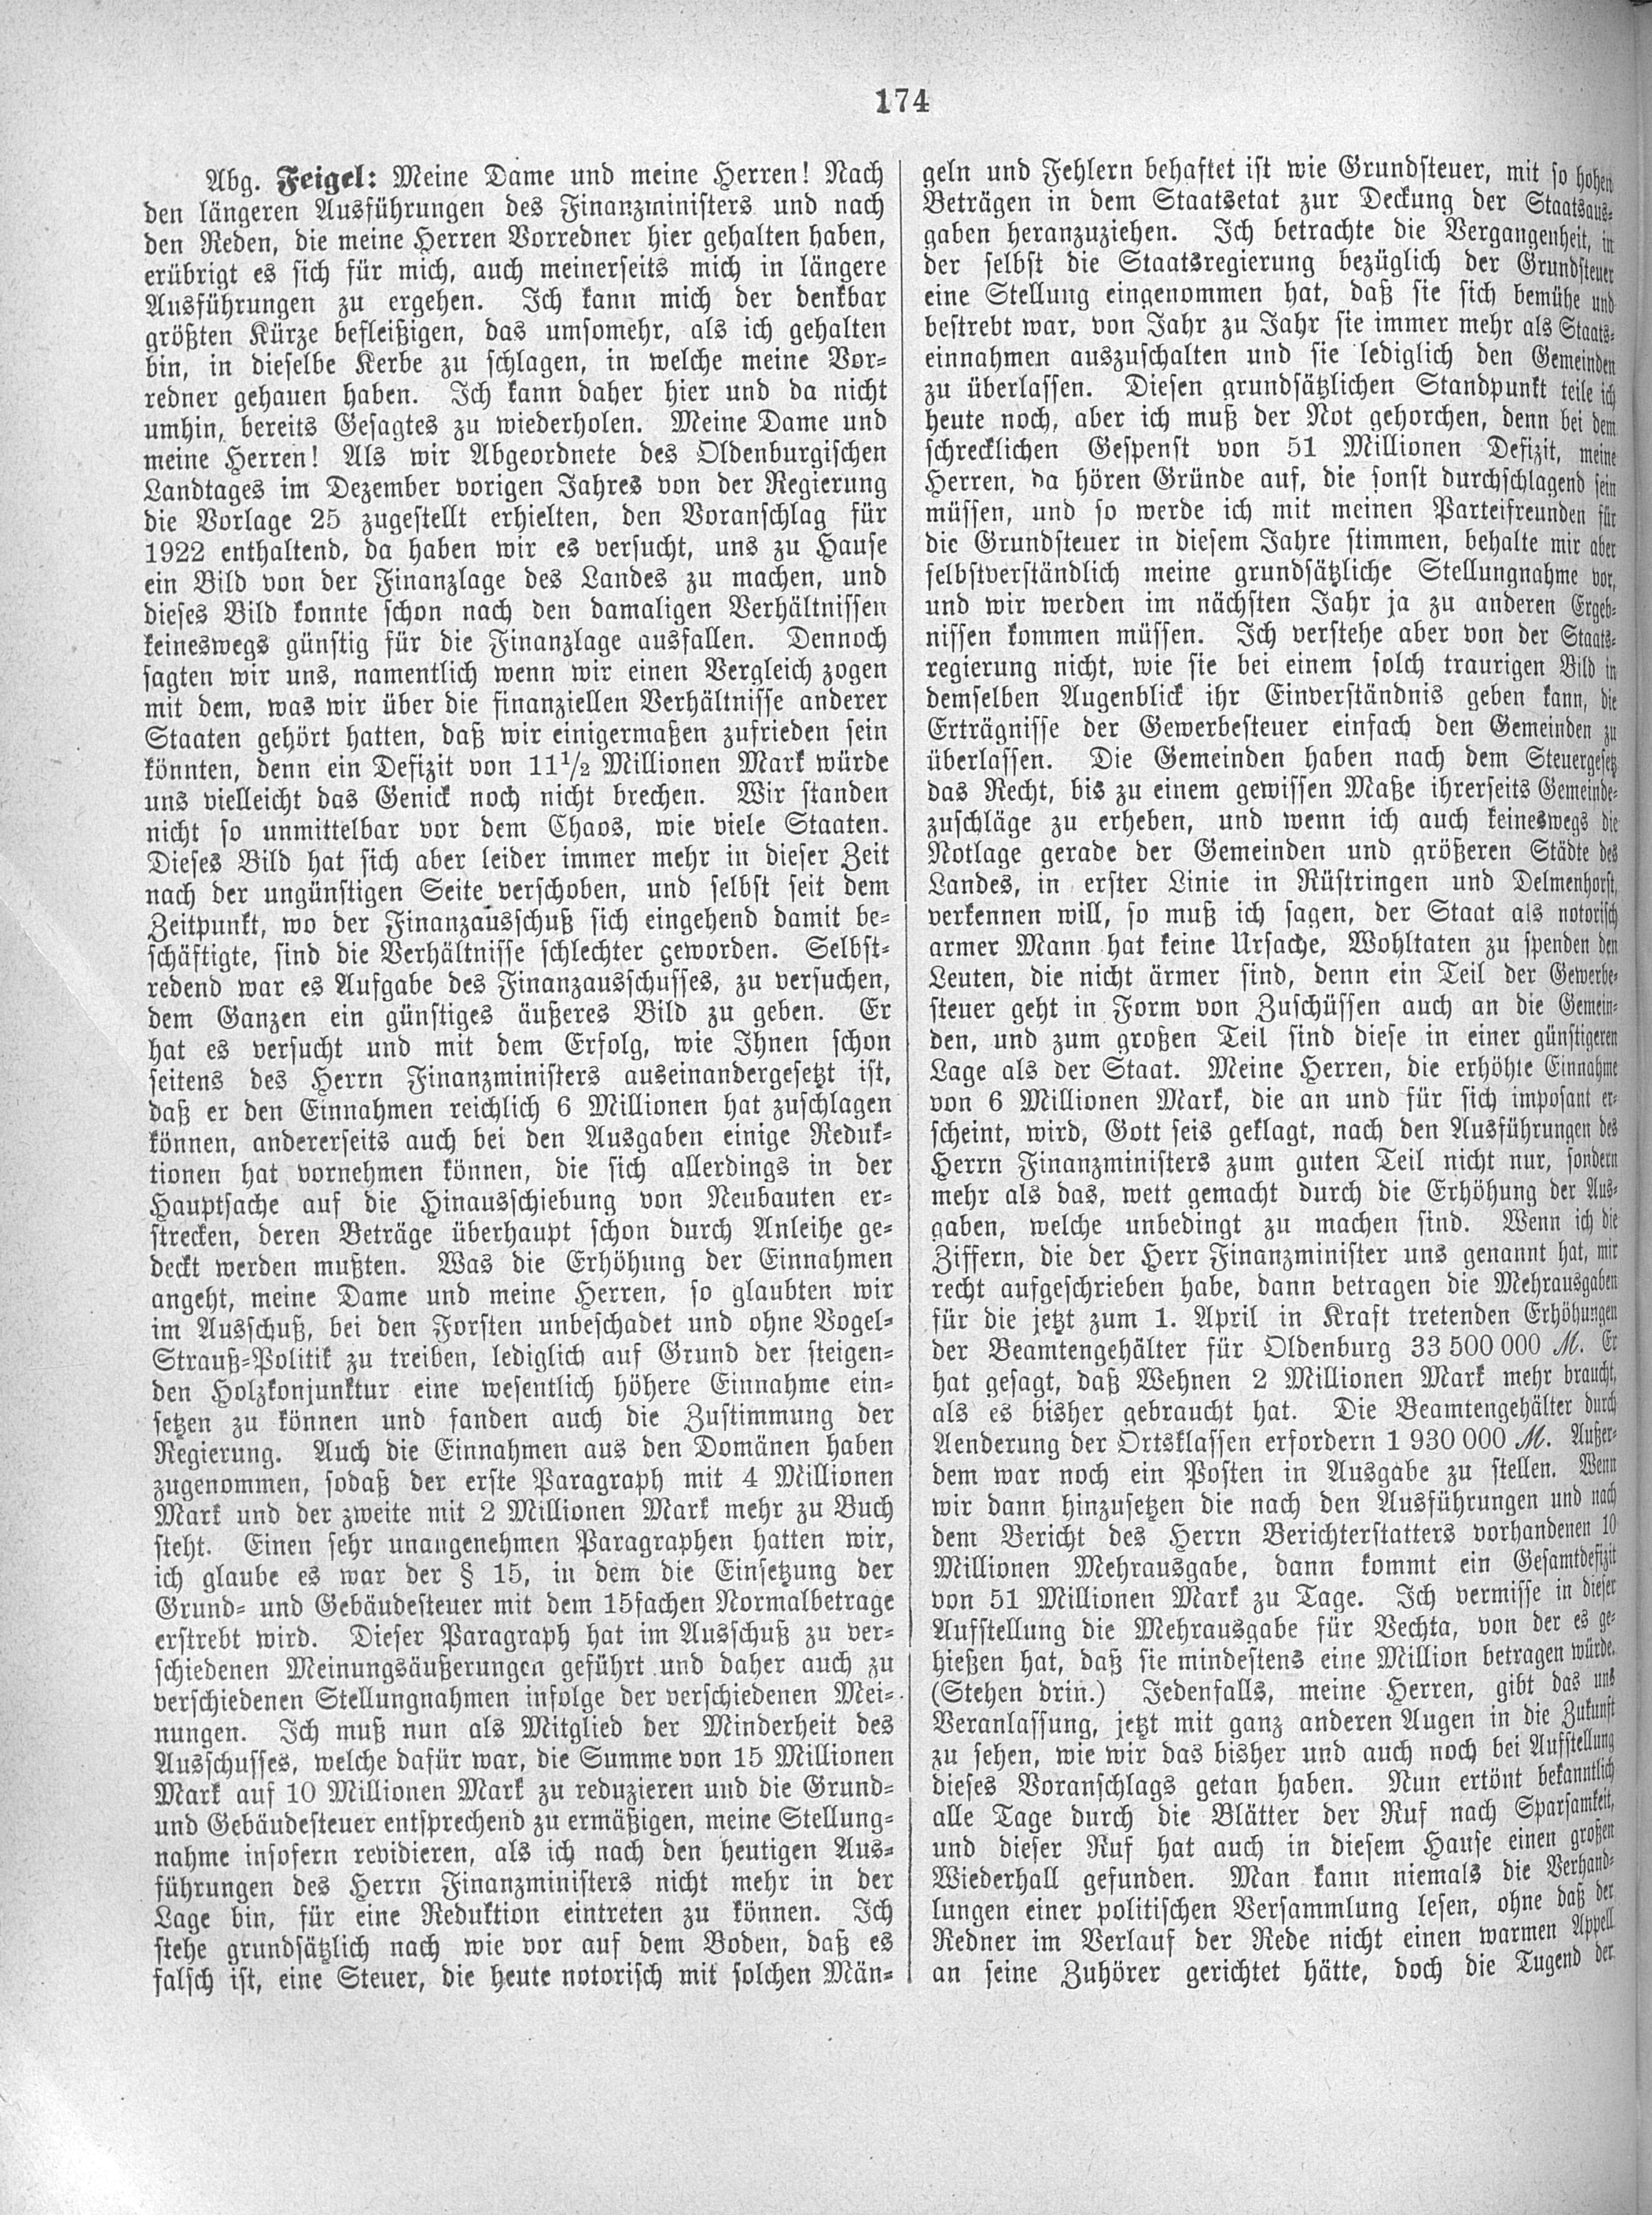 174
Abg. Feigel: Meine Dame und meine Herren! Nach
den längeren Ausführungen des Finanzministers und nach
den Reden, die meine Herren Vorredner hier gehalten haben,
erübrigt es sich für mich, auch meinerseits mich in längere
Ausführungen zu ergehen. Ich kann mich der denkbar
größten Kürze befleißigen, das umsomehr, als ich gehalten
bin, in dieselbe Kerbe zu schlagen, in welche meine Vor-
redner gehauen haben. Ich kann daher hier und da nicht
umhin, bereits Gesagtes zu wiederholen. Meine Dame und
meine Herren! Als wir Abgeordnete des Oldenburgischen
Landtages im Dezember vorigen Jahres von der Regierung
die Vorlage 25 zugestellt erhielten, den Voranschlag für
1922 enthaltend, da haben wir es versucht, uns zu Hause
ein Bild von der Finanzlage des Landes zu machen, und
dieses Bild konnte schon nach den damaligen Verhältnissen
keineswegs günstig für die Finanzlage ausfallen. Dennoch
sagten wir uns, namentlich wenn wir einen Vergleich zogen
mit dem, was wir über die finanziellen Verhältnisse anderer
Staaten gehört hatten, daß wir einigermaßen zufrieden sein
könnten, denn ein Defizit von 11½ Millionen Mark würde
uns vielleicht das Genick noch nicht brechen. Wir standen
nicht so unmittelbar vor dem Chaos, wie viele Staaten.
Dieses Bild hat sich aber leider immer mehr in dieser Zeit
nach der ungünstigen Seite verschoben, und selbst seit dem
Zeitpunkt, wo der Finanzausschuß sich eingehend damit be-
schäftigte, sind die Verhältnisse schlechter geworden. Selbst-
redend war es Aufgabe des Finanzausschusses, zu versuchen,
dem Ganzen ein günstiges äußeres Bild zu geben. Er
hat es versucht und mit dem Erfolg, wie Ihnen schon
seitens des Herrn Finanzministers auseinandergesetzt ist,
daß er den Einnahmen reichlich 6 Millionen hat zuschlagen
können, andererseits auch bei den Ausgaben einige Reduk-
tionen hat vornehmen können, die sich allerdings in der
Hauptsache auf die Hinausschiebung von Neubauten er-
strecken, deren Beträge überhaupt schon durch Anleihe ge-
deckt werden mußten. Was die Erhöhung der Einnahmen
angeht, meine Dame und meine Herren, so glaubten wir
im Ausschuß, bei den Forsten unbeschadet und ohne Vogel-
Strauß-Politik zu treiben, lediglich auf Grund der steigen-
den Holzkonjunktur eine wesentlich höhere Einnahme ein-
setzen zu können und fanden auch die Zustimmung der
Regierung. Auch die Einnahmen aus den Domänen haben
zugenommen, sodaß der erste Paragraph mit 4 Millionen
Mark und der zweite mit 2 Millionen Mark mehr zu Buch
steht. Einen sehr unangenehmen Paragraphen hatten wir,
ich glaube es war der § 15, in dem die Einsetzung der
Grund- und Gebäudesteuer mit dem 15fachen Normalbetrage
erstrebt wird. Dieser Paragraph hat im Ausschuß zu ver-
schiedenen Meinungsäußerungen geführt und daher auch zu
verschiedenen Stellungnahmen infolge der verschiedenen Mei-
nungen. Ich muß nun als Mitglied der Minderheit des
Ausschusses, welche dafür war, die Summe von 15 Millionen
Mark auf 10 Millionen Mark zu reduzieren und die Grund-
und Gebäudesteuer entsprechend zu ermäßigen, meine Stellung-
nahme insofern revidieren, als ich nach den heutigen Aus-
führungen des Herrn Finanzministers nicht mehr in der
Lage bin, für eine Reduktion eintreten zu können. Ich
stehe grundsätzlich nach wie vor auf dem Boden, daß es
falsch ist, eine Steuer, die heute notorisch mit solchen Män-
geln und Fehlern behaftet ist wie Grundsteuer, mit so hohen
Beträgen in dem Staatsetat zur Deckung der Staatsaus-
gaben heranzuziehen. Ich betrachte die Vergangenheit, in
der selbst die Staatsregierung bezüglich der Grundsteuer
eine Stellung eingenommen hat, daß sie sich bemühe und
bestrebt war, von Jahr zu Jahr sie immer mehr als Staats-
einnahmen auszuschalten und sie lediglich den Gemeinden
zu überlassen. Diesen grundsätzlichen Standpunkt teile ich
heute noch, aber ich muß der Not gehorchen, denn bei dem
schrecklichen Gespenst von 51 Millionen Defizit, meine
Herren, da hören Gründe auf, die sonst durchschlagend sein
müssen, und so werde ich mit meinen Parteifreunden für
die Grundsteuer in diesem Jahre stimmen, behalte mir aber
selbstverständlich meine grundsätzliche Stellungnahme vor,
und wir werden im nächsten Jahr ja zu anderen Ergeb-
nissen kommen müssen. Ich verstehe aber von der Staats-
regierung nicht, wie sie bei einem solch traurigen Bild in
demselben Augenblick ihr Einverständnis geben kann, die
Erträgnisse der Gewerbesteuer einfach den Gemeinden zu
überlassen. Die Gemeinden haben nach dem Steuergesetz
das Recht, bis zu einem gewissen Maße ihrerseits Gemeinde-
zuschläge zu erheben, und wenn ich auch keineswegs die
Notlage gerade der Gemeinden und größeren Städte des
Landes, in erster Linie in Rüstringen und Delmenhorst,
verkennen will, so muß ich sagen, der Staat als notorisch
armer Mann hat keine Ursache, Wohltaten zu spenden den
Leuten, die nicht ärmer sind, denn ein Teil der Gewerbe-
steuer geht in Form von Zuschüssen auch an die Gemein-
den, und zum großen Teil sind diese in einer günstigeren
Lage als der Staat. Meine Herren, die erhöhte Einnahme
von 6 Millionen Mark, die an und für sich imposant er-
scheint, wird, Gott seis geklagt, nach den Ausführungen des
Herrn Finanzministers zum guten Teil nicht nur, sondern
mehr als das, wett gemacht durch die Erhöhung der Aus-
gaben, welche unbedingt zu machen sind. Wenn ich die
Ziffern, die der Herr Finanzminister uns genannt hat, mir
recht aufgeschrieben habe, dann betragen die Mehrausgaben
für die jetzt zum 1. April in Kraft tretenden Erhöhungen
der Beamtengehälter für Oldenburg 33 500 000 M. Er
hat gesagt, daß Wehnen 2 Millionen Mark mehr braucht,
als es bisher gebraucht hat. Die Beamtengehälter durch
Aenderung der Ortsklassen erfordern 1 930 000 M. Außer-
dem war noch ein Posten in Ausgabe zu stellen. Wenn
wir dann hinzusetzen die nach den Ausführungen und nach
dem Bericht des Herrn Berichterstatters vorhandenen 10
Millionen Mehrausgabe, dann kommt ein Gesamtdefizit
von 51 Millionen Mark zu Tage. Ich vermisse in dieser
Aufstellung die Mehrausgabe für Vechta, von der es ge-
hießen hat, daß sie mindestens eine Million betragen würde.
(Stehen drin.) Jedenfalls, meine Herren, gibt das uns
Veranlassung, jetzt mit ganz anderen Augen in die Zukunft
zu sehen, wie wir das bisher und auch noch bei Aufstellung
dieses Voranschlags getan haben. Nun ertönt bekanntlich
alle Tage durch die Blätter der Ruf nach Sparsamkeit,
und dieser Ruf hat auch in diesem Hause einen großen
Wiederhall gefunden. Man kann niemals die Verhand-
lungen einer politischen Versammlung lesen, ohne daß der
Redner im Verlauf der Rede nicht einen warmen Appell
an seine Zuhörer gerichtet hätte, doch die Tugend der